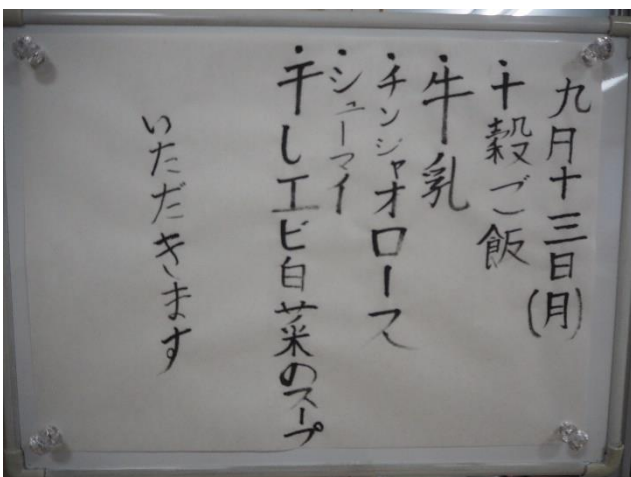 九月十三日(月)
・十穀ご飯
・牛乳
・チンジャオロース
・シューマイ
・干しエビ白菜のスープ
いただきます